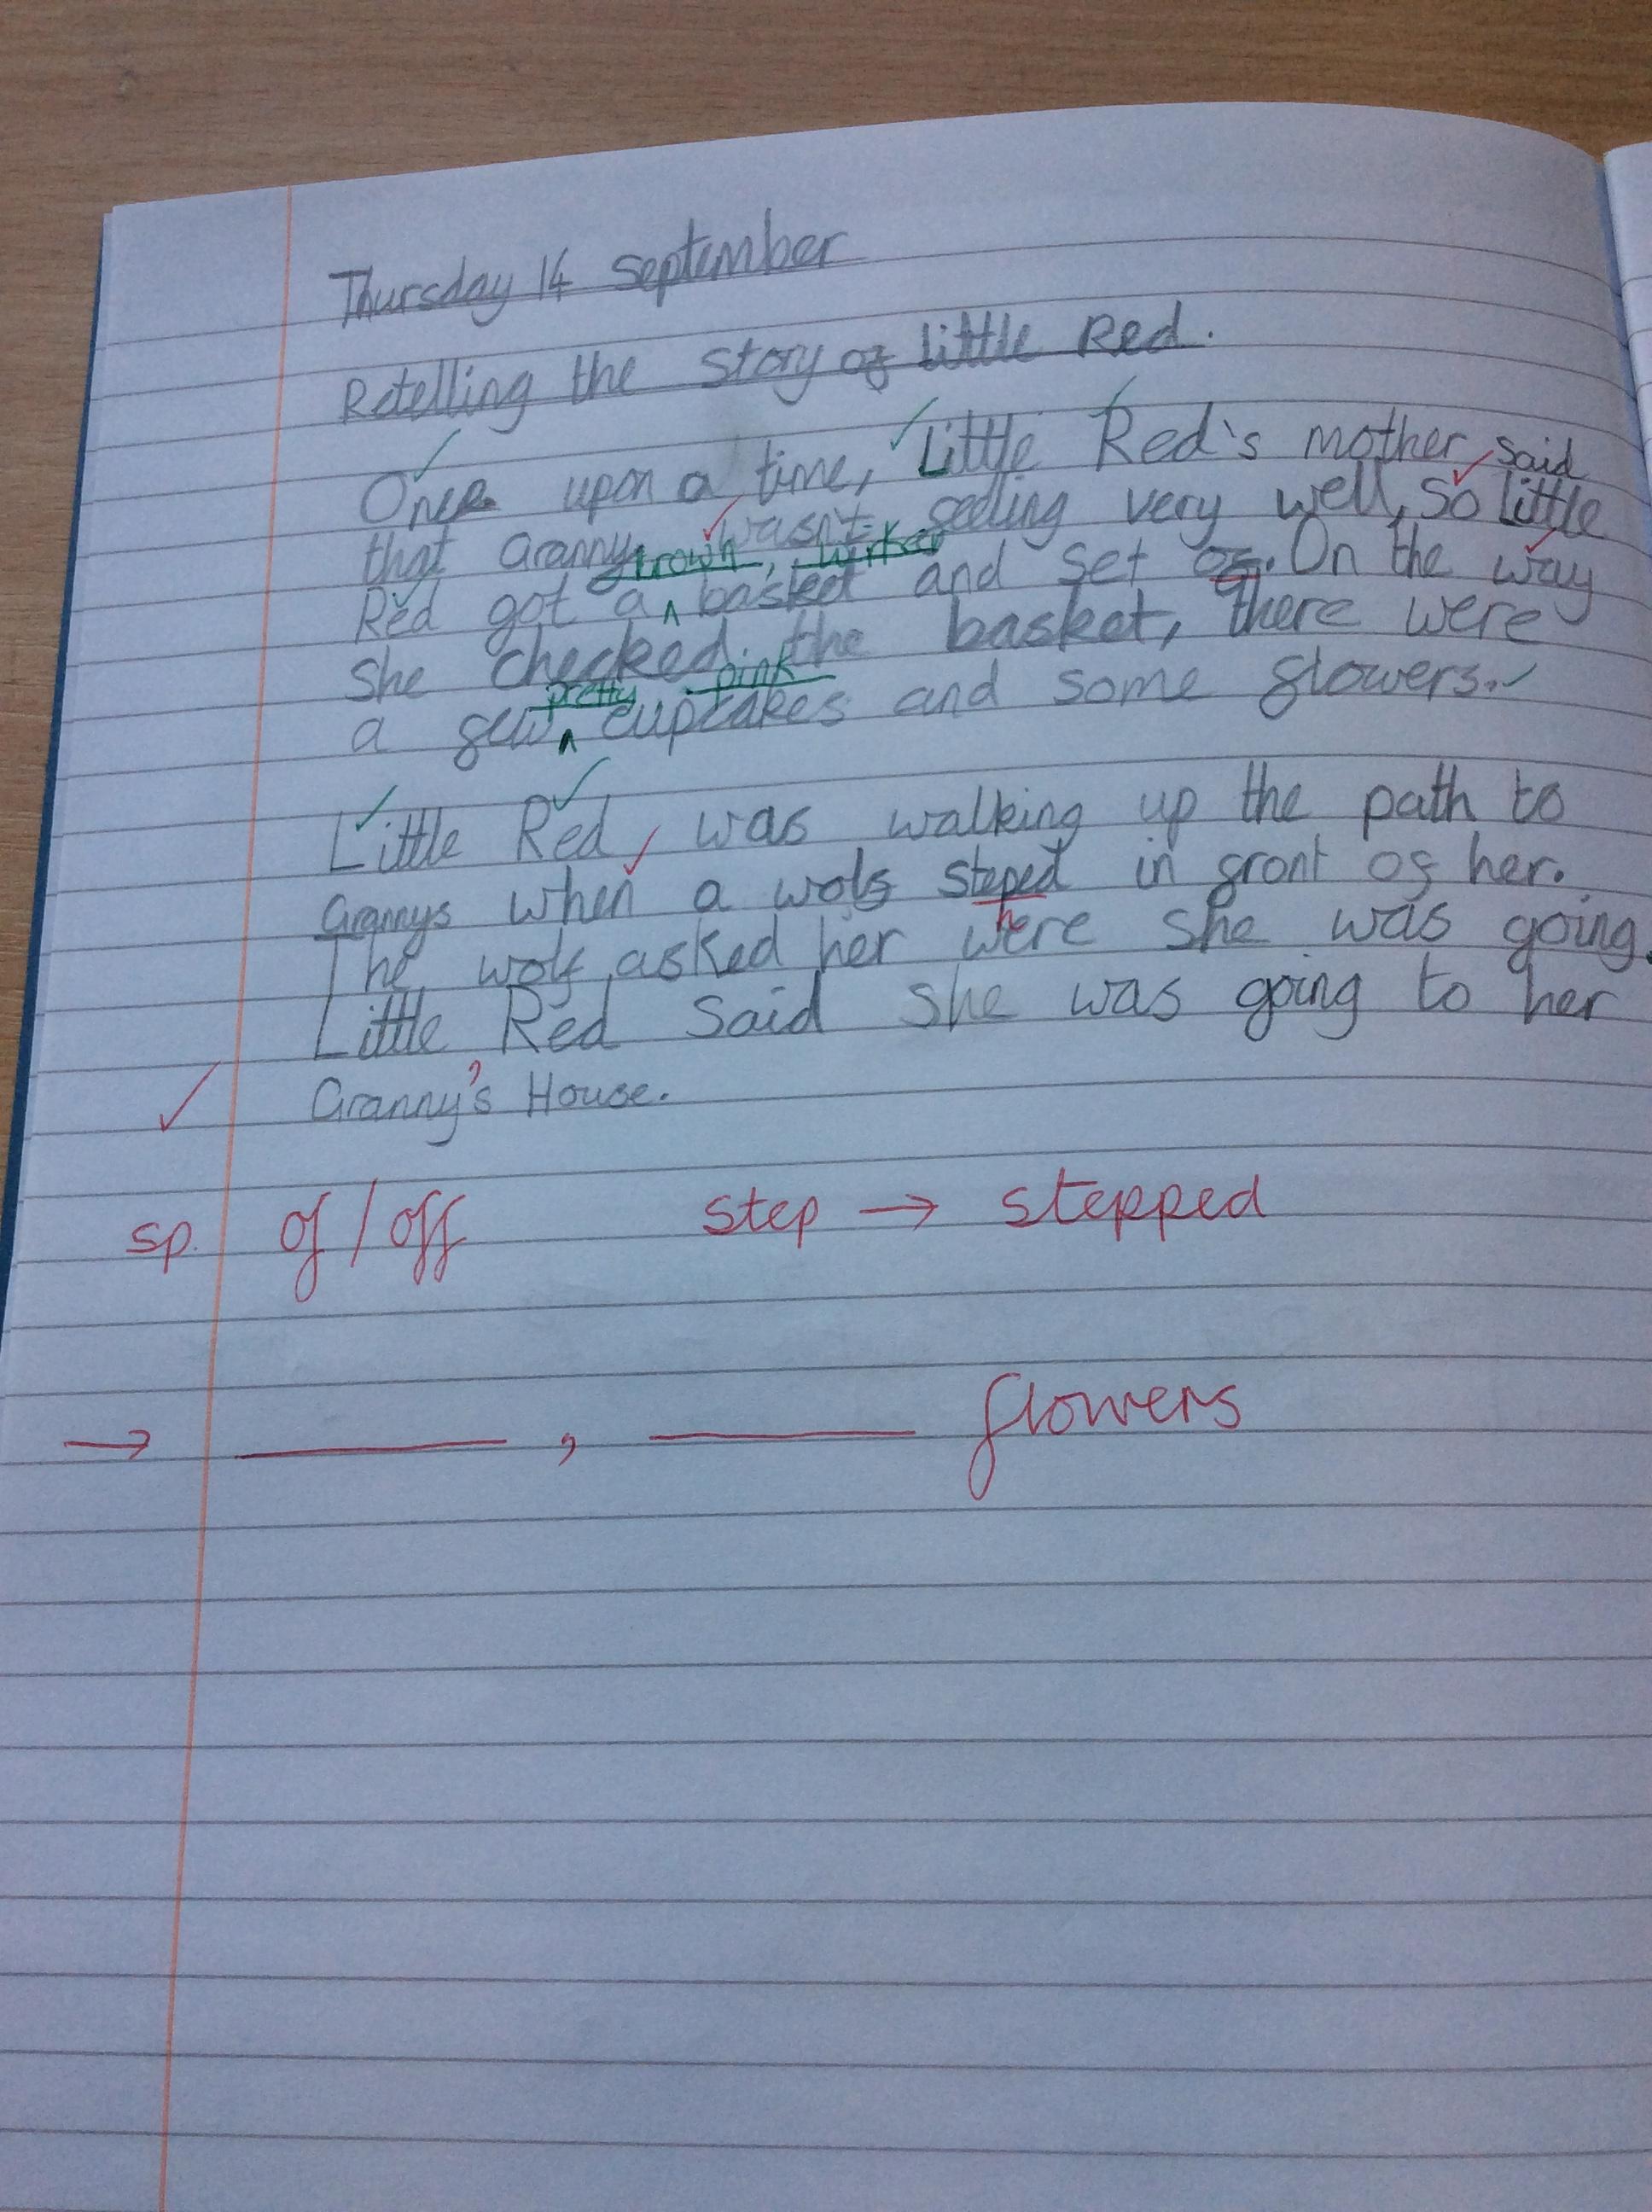 Thursday 14 September
Retelling the story of little Red.
Once upon a time, Little Red's mother said
that Granny wasn't feeling very well, so little
brown, wirker
Red got a ^ basket and set of. On the way
she checked the basket, there were
pretty pink
a few ^ cupcakes and some flowers.
Little Red was walking up the path to
Grannys when a wolf steped in front of her.
h
The wolf asked her were she was going.
Little Red said she was going to her
Granny's House.
sp. of / off step → stepped
→ , flowers